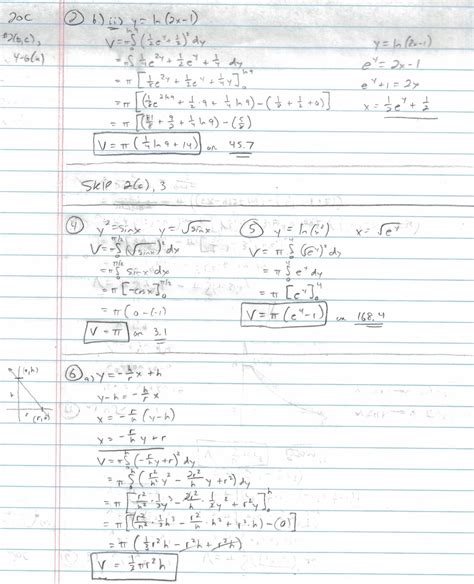 20C
#2(b,c),
4-6(a)
② b) ii) y = ln(2x-1)
V = π∫₀^ln9 (½e^y + ½)² dy
= π∫₀^ln9 ¼e^2y + ½e^y + ¼ dy
= π[⅛e^2y + ½e^y + ¼y]₀^ln9
= π[(⅛e^2ln9 + ½·9 + ¼ln9) - (⅛ + ½ + 0)]
= π[(81/8 + 9/2 + ¼ln9) - (5/8)]
V = π(¼ln9 + 14) or 45.7
y = ln(2x-1)
e^y = 2x-1
e^y + 1 = 2x
x = ½e^y + ½
SKIP 2(c), 3
④ y² = sinx y = √sinx
V = π∫₀^π/2 (√sinx)² dx
= π∫₀^π/2 sinx dx
= π[-cosx]₀^π/2
= π(0-(-1))
V = π or 3.1
⑤ y = ln(x²) x = √e^y
V = π∫₀^4 (√e^y)² dy
= π∫₀^4 e^y dy
= π[e^y]₀^4
V = π(e^4 - 1) or 168.4
(0,h)
h
r (r,0)
⑥ a) y = -h/r x + h
y-h = -h/r x
x = -r/h (y-h)
x = -r/h y + r
V = π∫₀^h (-r/h y + r)² dy
= π∫₀^h (r²/h² y² - 2r²/h y + r²) dy
= π[r²/h² · ⅓y³ - 2r²/h · ½y² + r²y]₀^h
= π[(r²/h² · ⅓h³ - r²/h · h² + r²·h) - (0)]
= π(⅓r²h - r²h + r²h)
V = ⅓πr²h